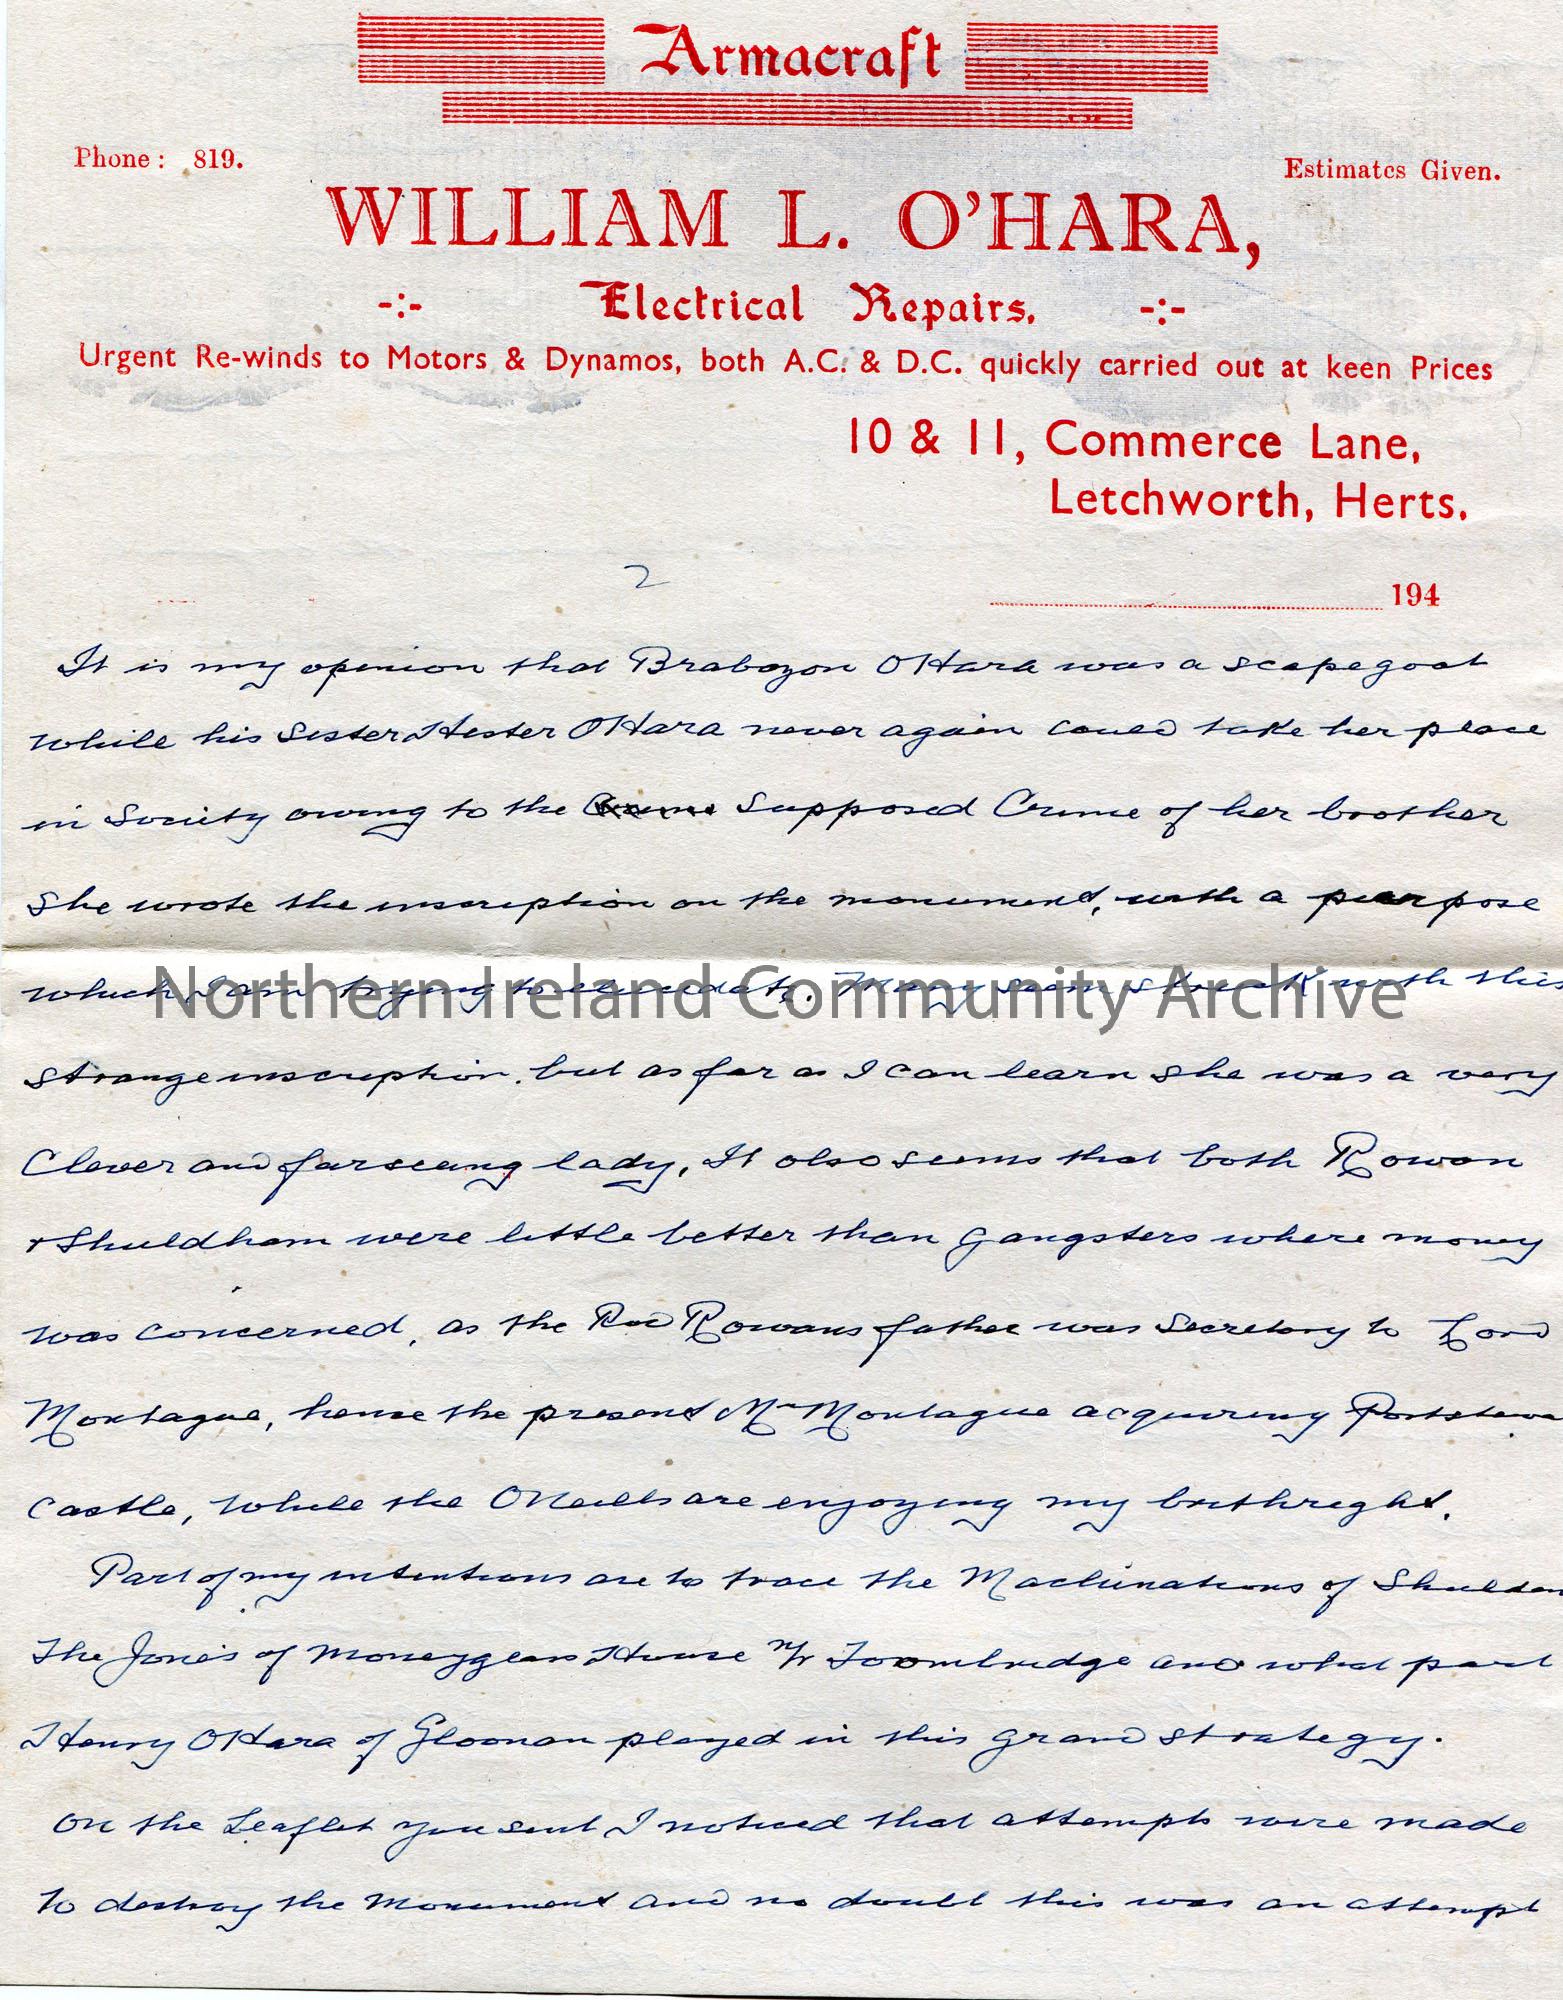 Armacraft
Phone: 819.
Estimates Given.
WILLIAM L. O'HARA,
-:- Electrical Repairs. -:-
Urgent Re-winds to Motors & Dynamos, both A.C. & D.C. quickly carried out at keen Prices
10 & 11, Commerce Lane,
Letchworth, Herts.
2
194
It is my opinion that Brabazon O'Hara was a scapegoat
while his Sister Hester O'Hara never again could take her place
in Society owing to the Supposed Crime of her brother
She wrote the inscription on the monument, with a purpose
which I am trying to elucidate. Many seem struck with this
Northern Ireland Community Archive
strange inscription, but as far as I can learn she was a very
Clever and farseeing lady, It also seems that both Rowan
+ Shuldham were little better than gangsters where money
was concerned, as the Rev Rowans father was Secretary to Lord
Montague, hence the present Mr Montague acquiring Portstewa
Castle, while the ONeills are enjoying my birthright.
Part of my intentions are to trace the Machinations of Shuldam
The Jones of Moneyglass House n/r Toombridge and what part
Henry O'Hara of Gloonan played in this grand strategy.
On the Leaflet you sent I noticed that attempts were made
to destroy the Monument and no doubt this was an attempt